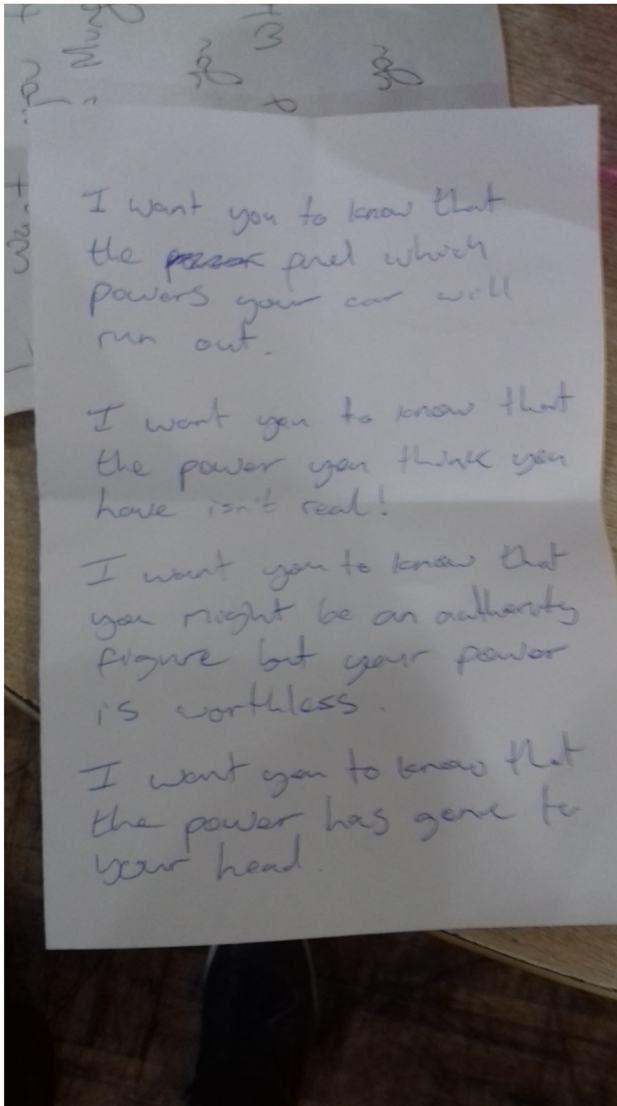 I want you to know that
the fuel which
powers your car will
run out.
I want you to know that
the power you think you
have isn't real!
I want you to know that
you might be an authority
figure but your power
is worthless.
I want you to know that
the power has gone to
your head.